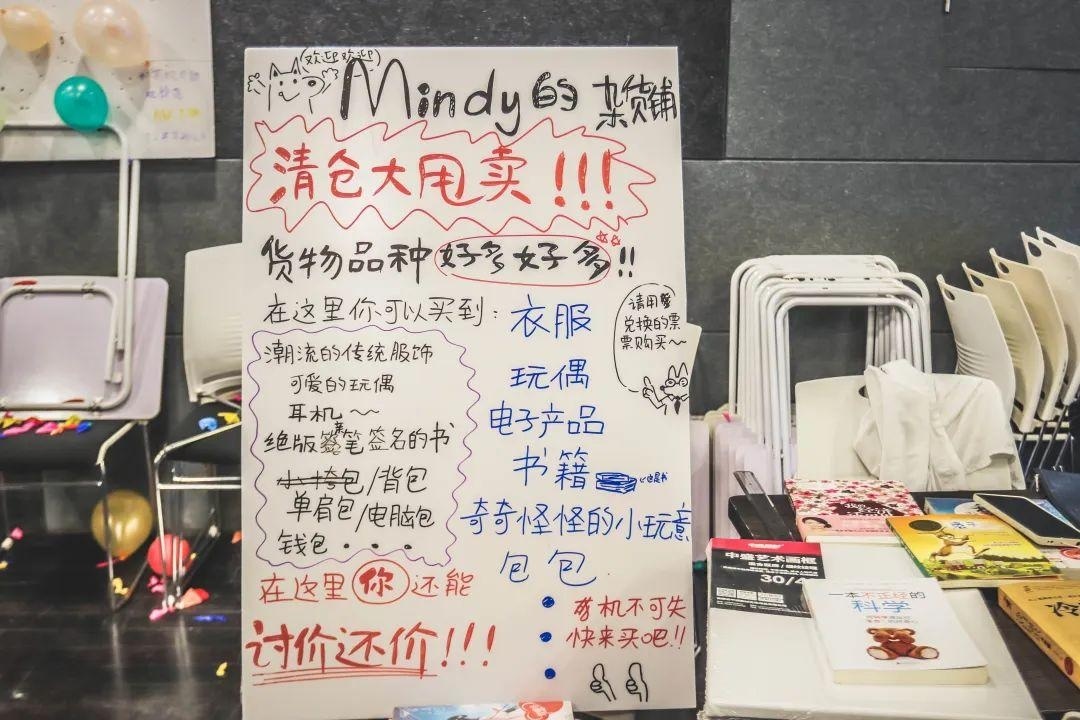 (欢迎欢迎)
Mindy的杂货铺
清仓大甩卖!!!
货物品种好多好多!!
在这里你可以买到:
潮流的传统服饰
可爱的玩偶
耳机~~
绝版亲笔签名的书
小挎包/背包
单肩包/电脑包
钱包...
衣服
玩偶
电子产品
书籍
奇奇怪怪的小玩意
包包
请用
兑换的票
票购买~
在这里你还能
讨价还价!!!
有机不可失
快来买吧!!
中盛艺术画框
30/4
一本不正经的
科学